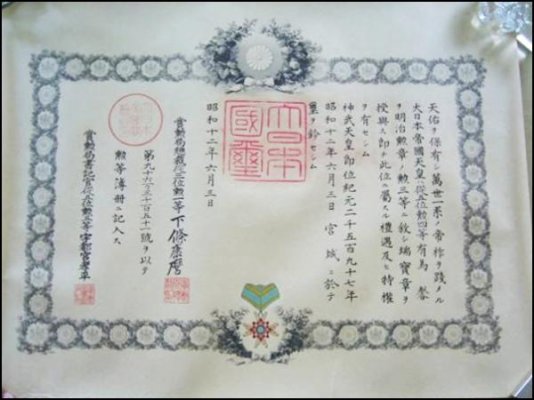 天佑ヲ保有シ萬世一系ノ帝祚ヲ踐メル
大日本帝國天皇ハ從五位勲四等有馬
ヲ明治勲章ノ勲三等ニ敘シ瑞寶章ヲ
授與ス即チ此位ニ属スル權遇及ヒ特權
ヲ有セシム
神武天皇即位紀元二千五百九十七年
昭和十二年六月三日宮城ニ於テ
璽ヲ鈐セシム
大日本
國璽
昭和十二年六月三日
賞勲局總裁從三位勲二等下條康麿
第九十六万三千百五十一號ヲ以テ
勲等簿冊ニ記入ス
賞勲局書記官從五位勲五等宇都宮孝平